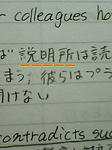 colleagues ho
ば 説明所は読
まう。彼らはつう
開けない
contradicts suc